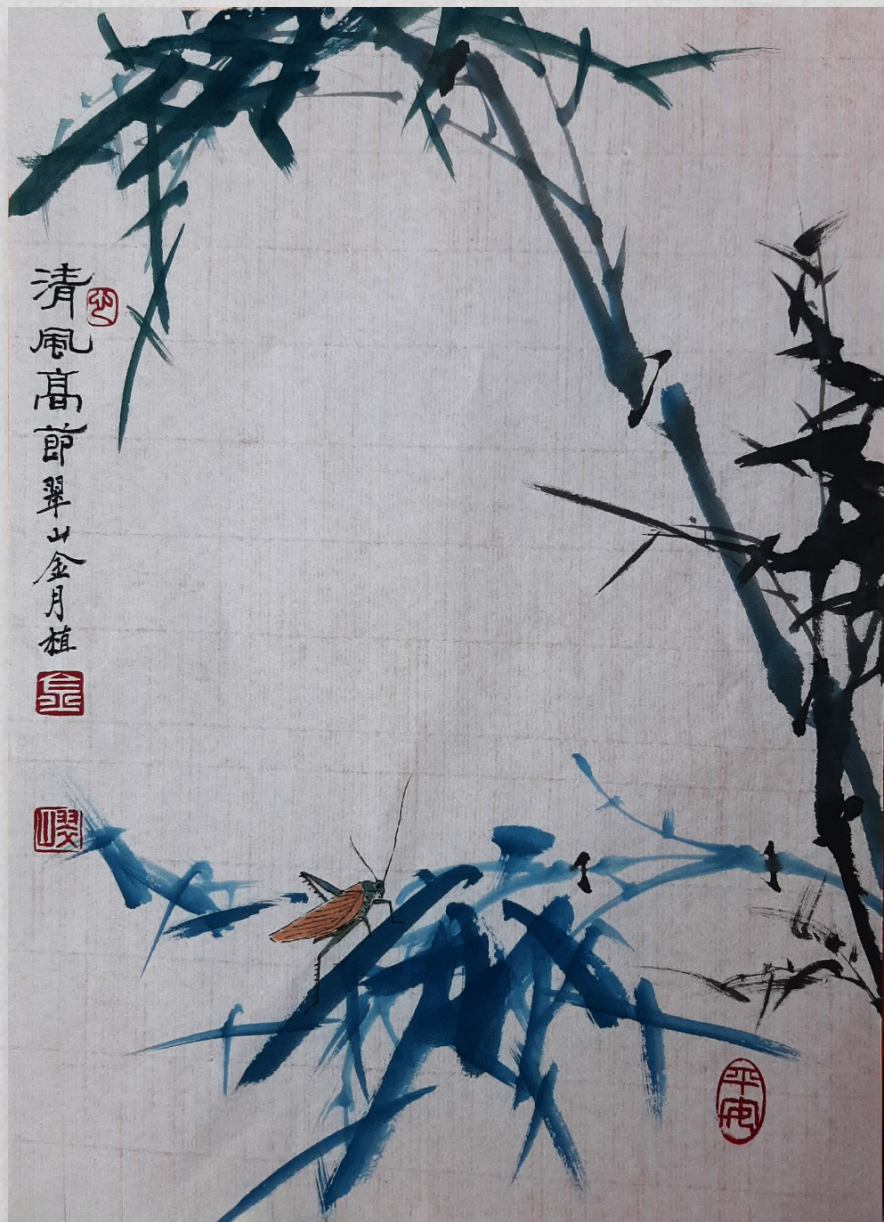 清風高節翠山金月植
平安